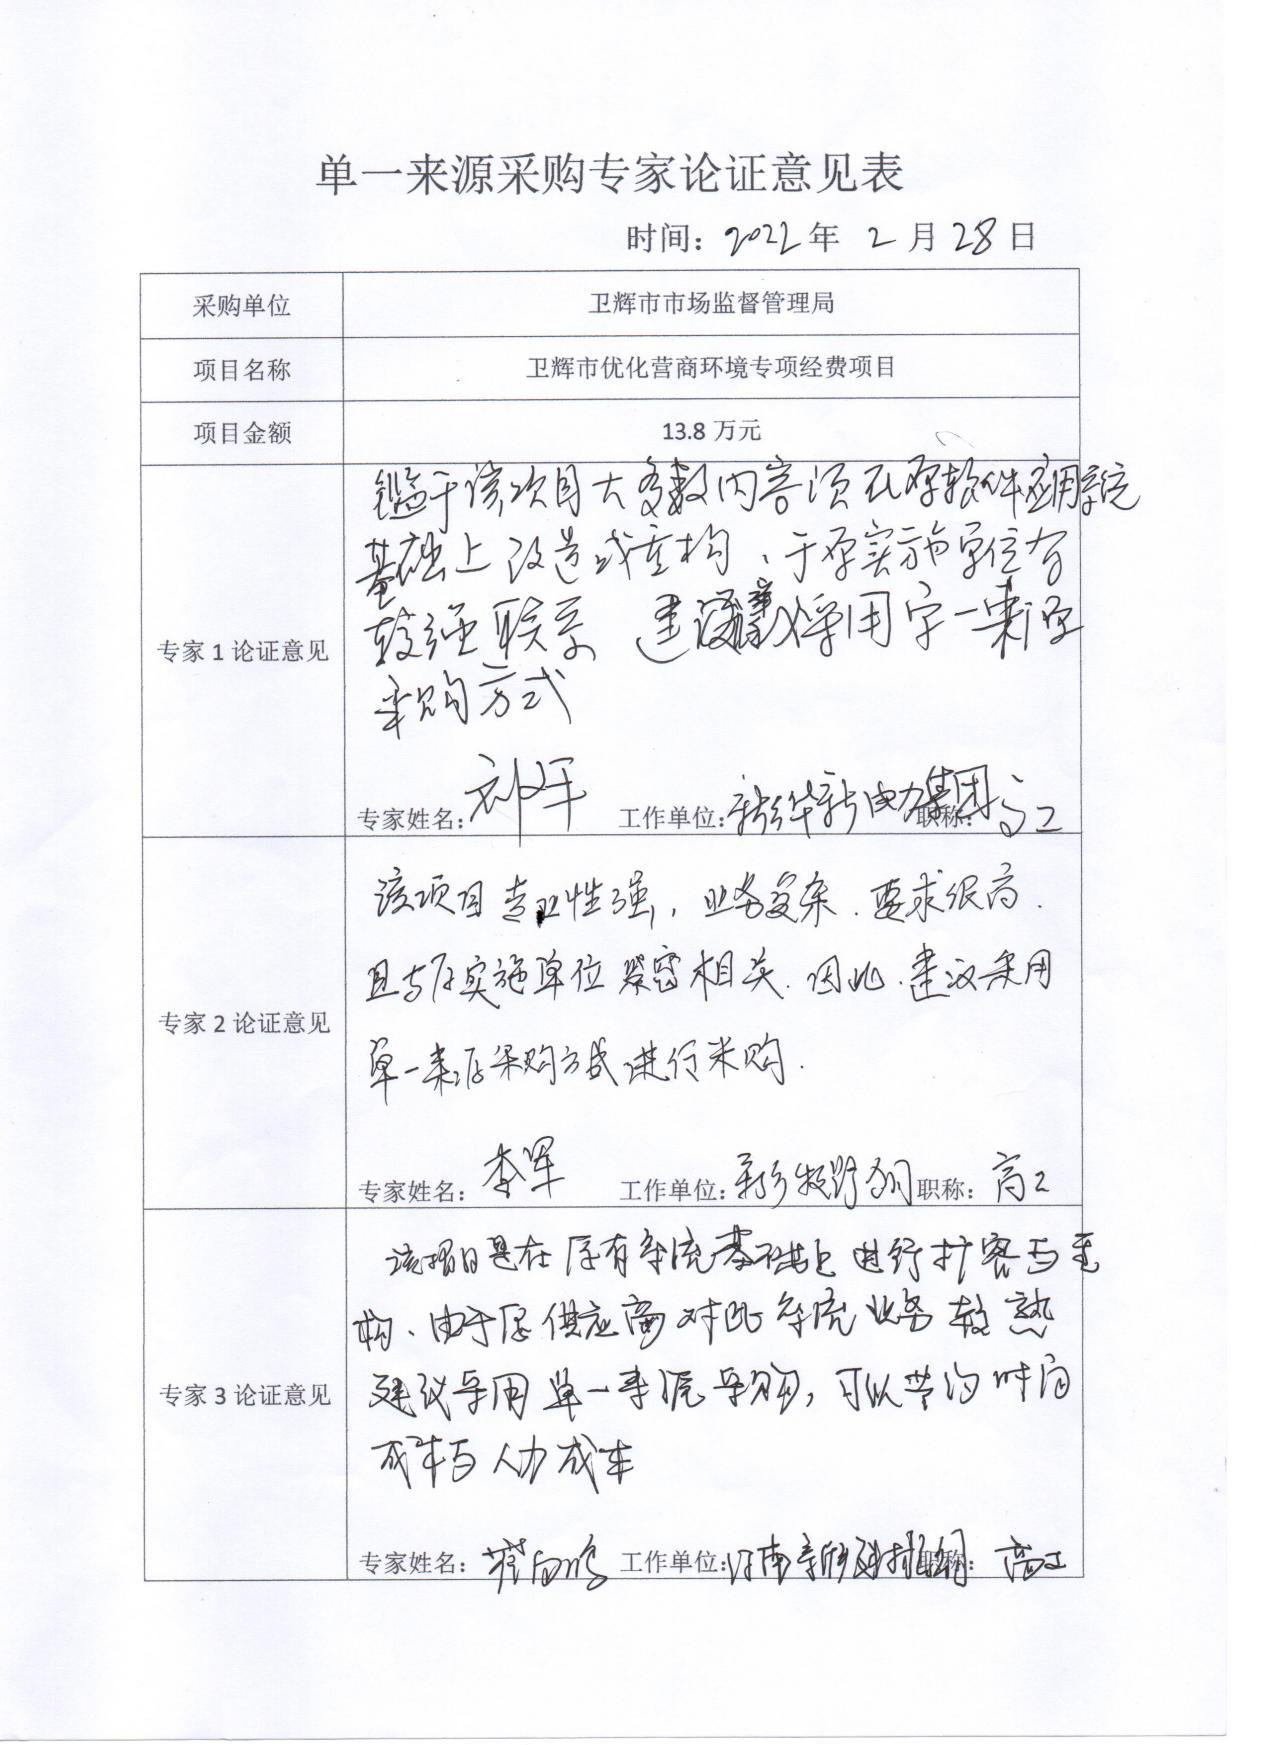 单一来源采购专家论证意见表
时间：2022年 2月28日
采购单位
卫辉市市场监督管理局
项目名称
卫辉市优化营商环境专项经费项目
项目金额
13.8 万元
专家 1 论证意见
鑑于该项目大多数内容须在原软件应用系统
基础上改造或重构、于原实施单位有
较强联系 建议采用单一来源
采购方式
专家姓名： 工作单位： 集团 职称： 高工
专家 2 论证意见
该项目专业性强，业务复杂．要求很高．
且与原实施单位紧密相关．因此．建议采用
单一来源采购方式进行采购．
专家姓名：李军 工作单位：新乡牧野 职称：高工
专家 3 论证意见
该项目是在原有系统基础上进行扩容与重
构、由于原供应商对此系统业务较熟
建议采用单一来源采购，可以节约时间
成本与人力成本
专家姓名： 工作单位：河南 职称： 高工